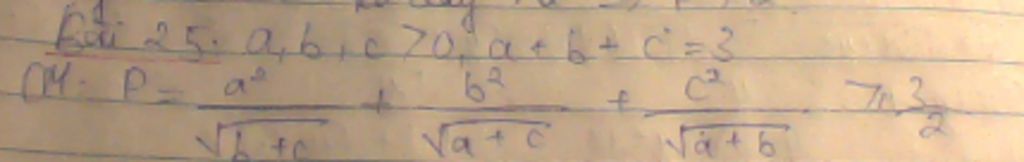 Bài 25. a, b, c > 0, a + b + c = 3
CM: P = a²/√(b + c) + b²/√(a + c) + c²/√(a + b) ≥ 3/2